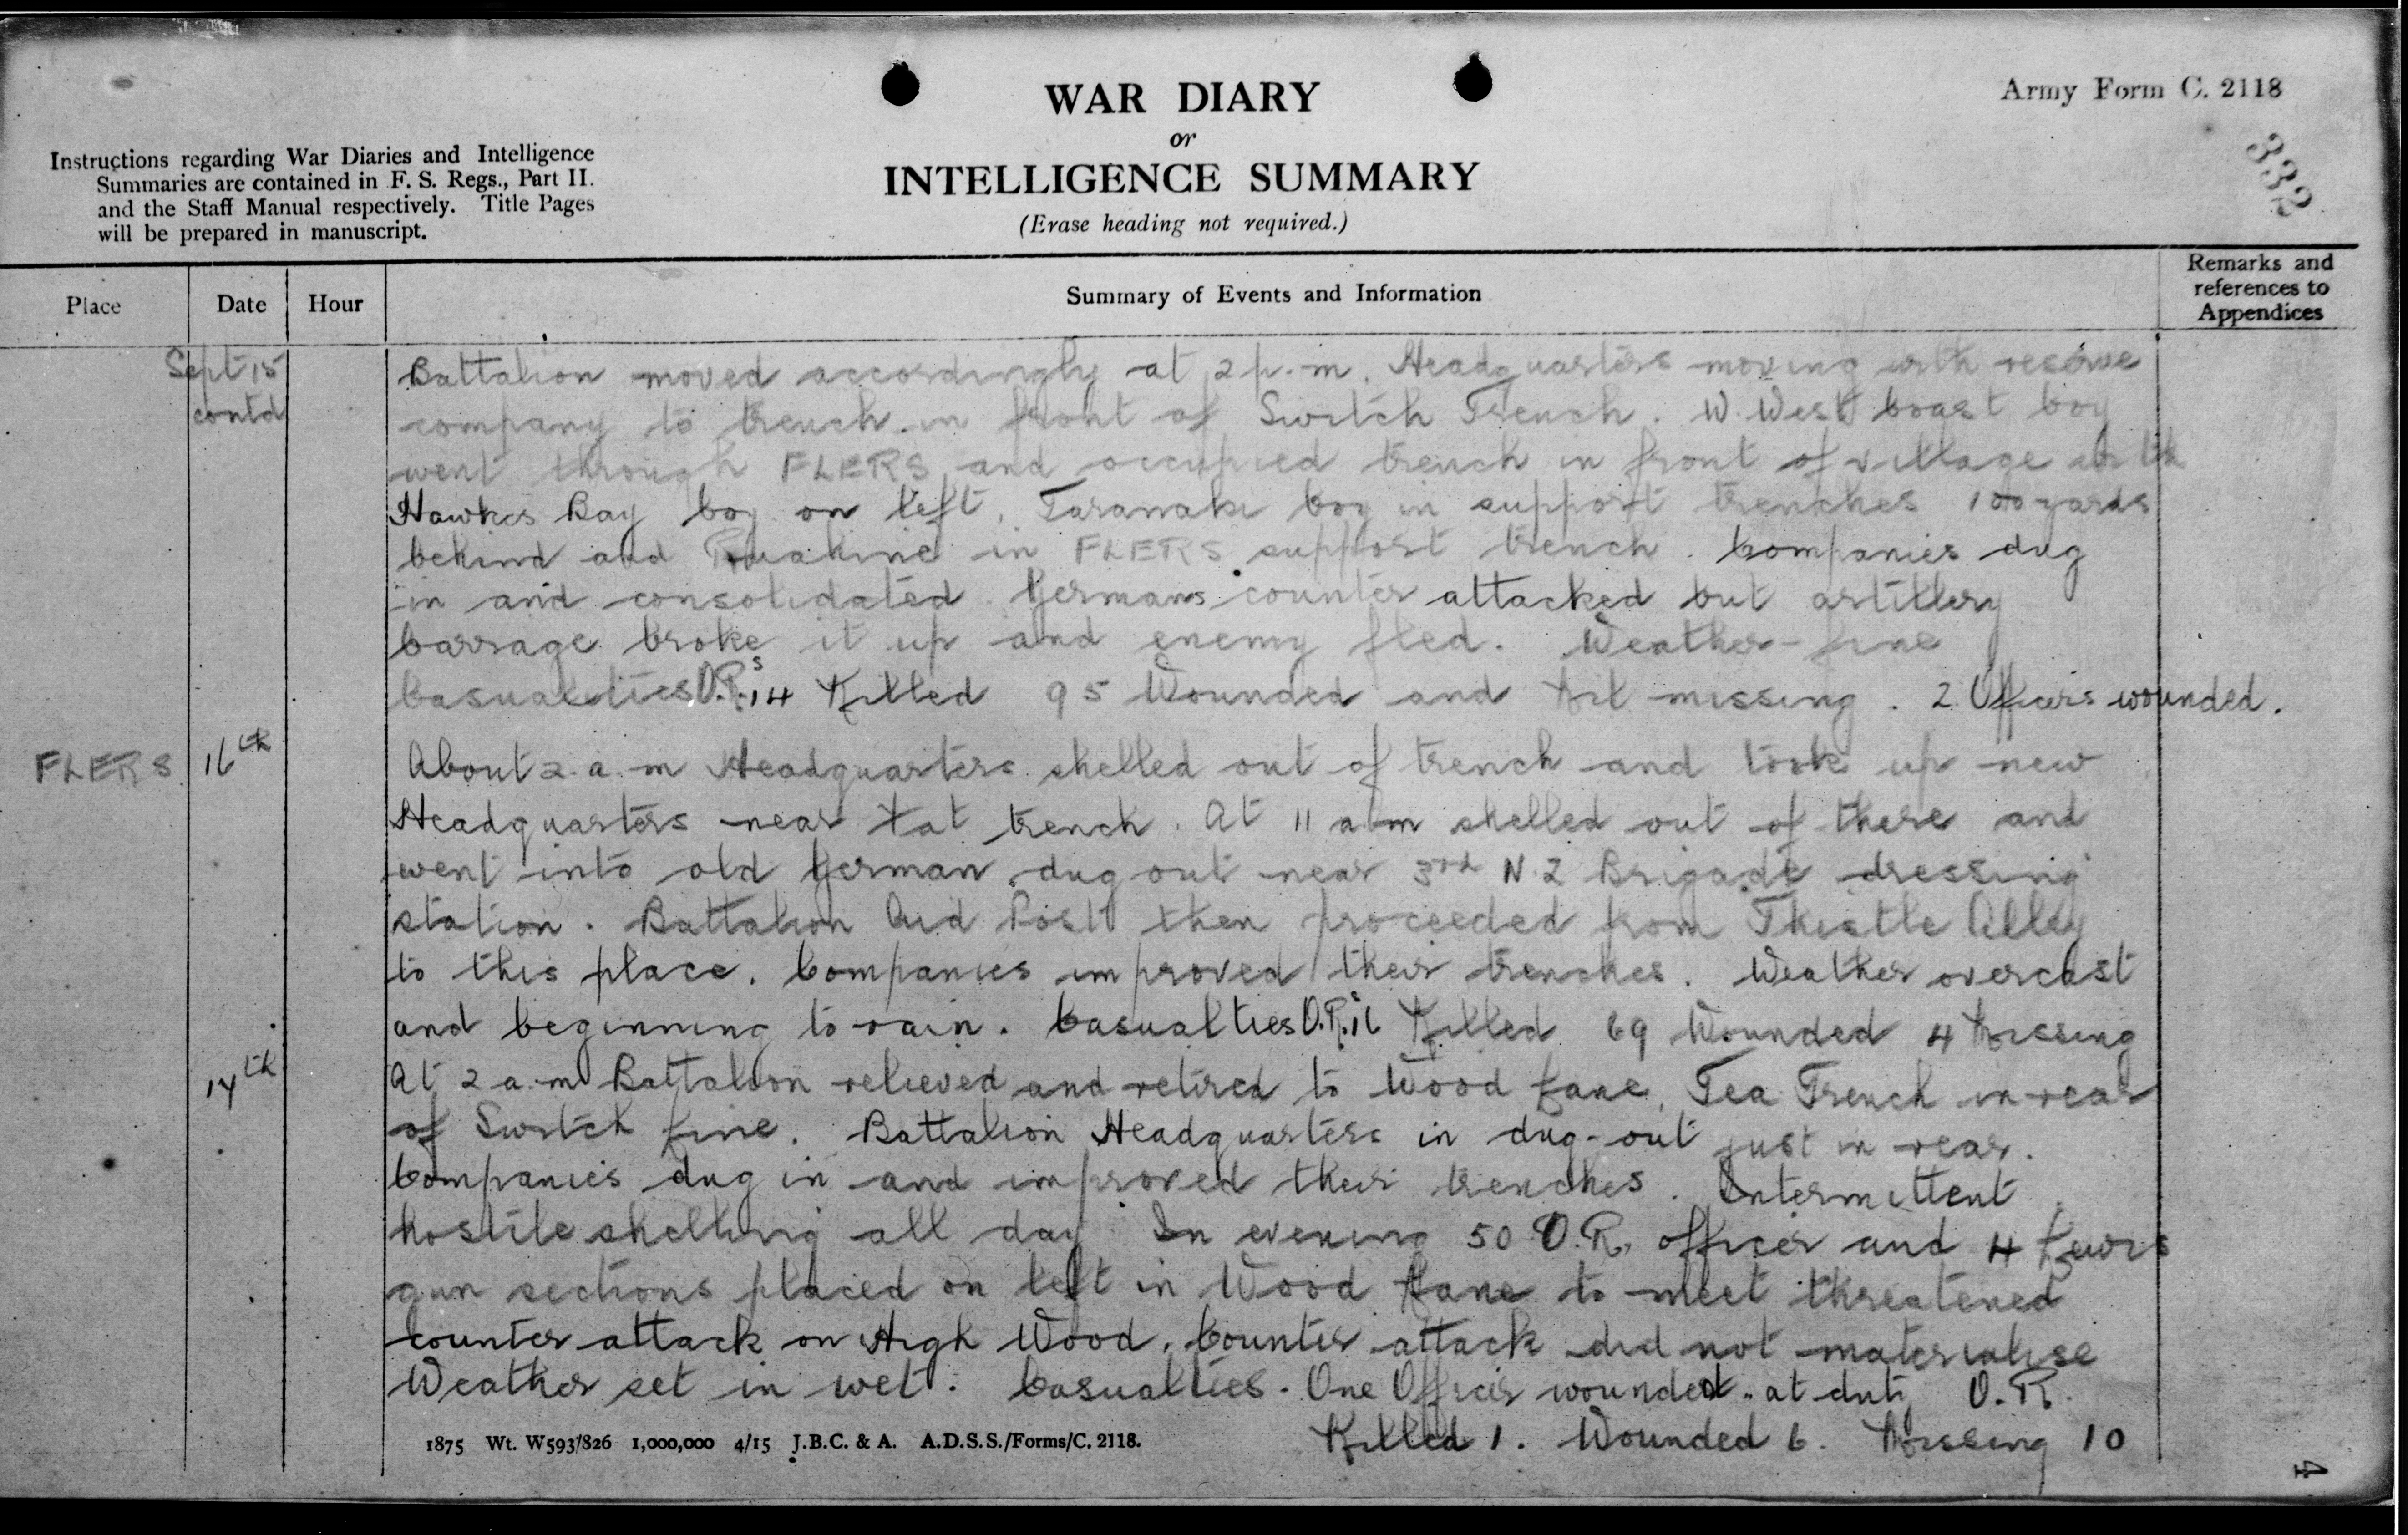 WAR DIARY
or
INTELLIGENCE SUMMARY
(Erase heading not required.)
Army Form C. 2118
332
Instructions regarding War Diaries and Intelligence
Summaries are contained in F. S. Regs., Part II.
and the Staff Manual respectively. Title Pages
will be prepared in manuscript.
Place Date Hour Summary of Events and Information Remarks and references to Appendices
Sept 15 Battalion moved accordingly at 2 p.m. Headquarters moving with reserve
contd company to trench in front of Switch Trench. W. West Coast Coy
went through FLERS and occupied trench in front of village with
Hawkes Bay Coy on left, Taranaki Coy in support trenches 100 yards
behind and Ruahine in FLERS support trench. Companies dug
in and consolidated. Germans counter attacked but artillery
barrage broke it up and enemy fled. Weather - fine
Casualties O.R.s 14 Killed 95 Wounded and Nil missing. 2 Officers wounded.
FLERS 16th About 2 a.m Headquarters shelled out of trench and took up new
Headquarters near Fat trench. At 11 a.m shelled out of there and
went into old German dug out near 3rd N.Z Brigade dressing
station. Battalion Aid Post then proceeded from Thistle Alley
to this place. Companies improved their trenches. Weather overcast
and beginning to rain. Casualties O.R.s 16 Killed 69 Wounded 4 Missing
17th At 2 a.m Battalion relieved and retired to Wood Lane, Tea Trench in rear
of Switch Line. Battalion Headquarters in dug-out just in rear.
Companies dug in and improved their trenches. Intermittent
hostile shelling all day. In evening 50 O.R. officer and 4 Lewis
gun sections placed on left in Wood Lane to meet threatened
counter attack on High Wood. Counter attack did not materialise
Weather set in wet. Casualties. One Officer wounded - at duty O.R.
Killed 1. Wounded 6. Missing 10
1875 Wt. W593/826 1,000,000 4/15 J.B.C. & A. A.D.S.S./Forms/C. 2118.
4